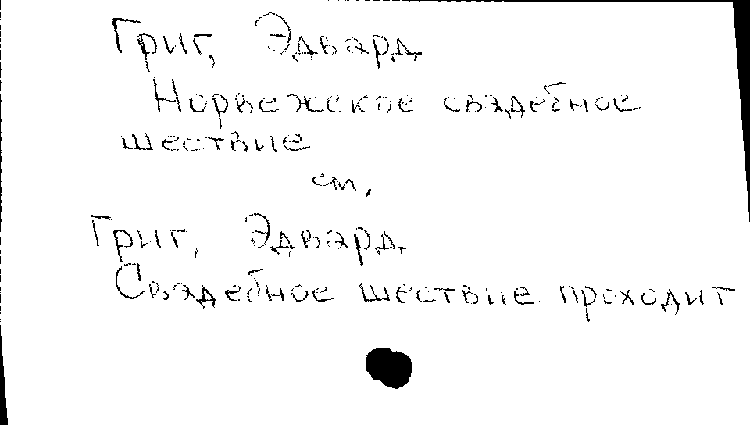 Григ, Эдвард.
Норвежское свадебное
шествие
см.
Григ, Эдвард.
Свадебное шествие проходит